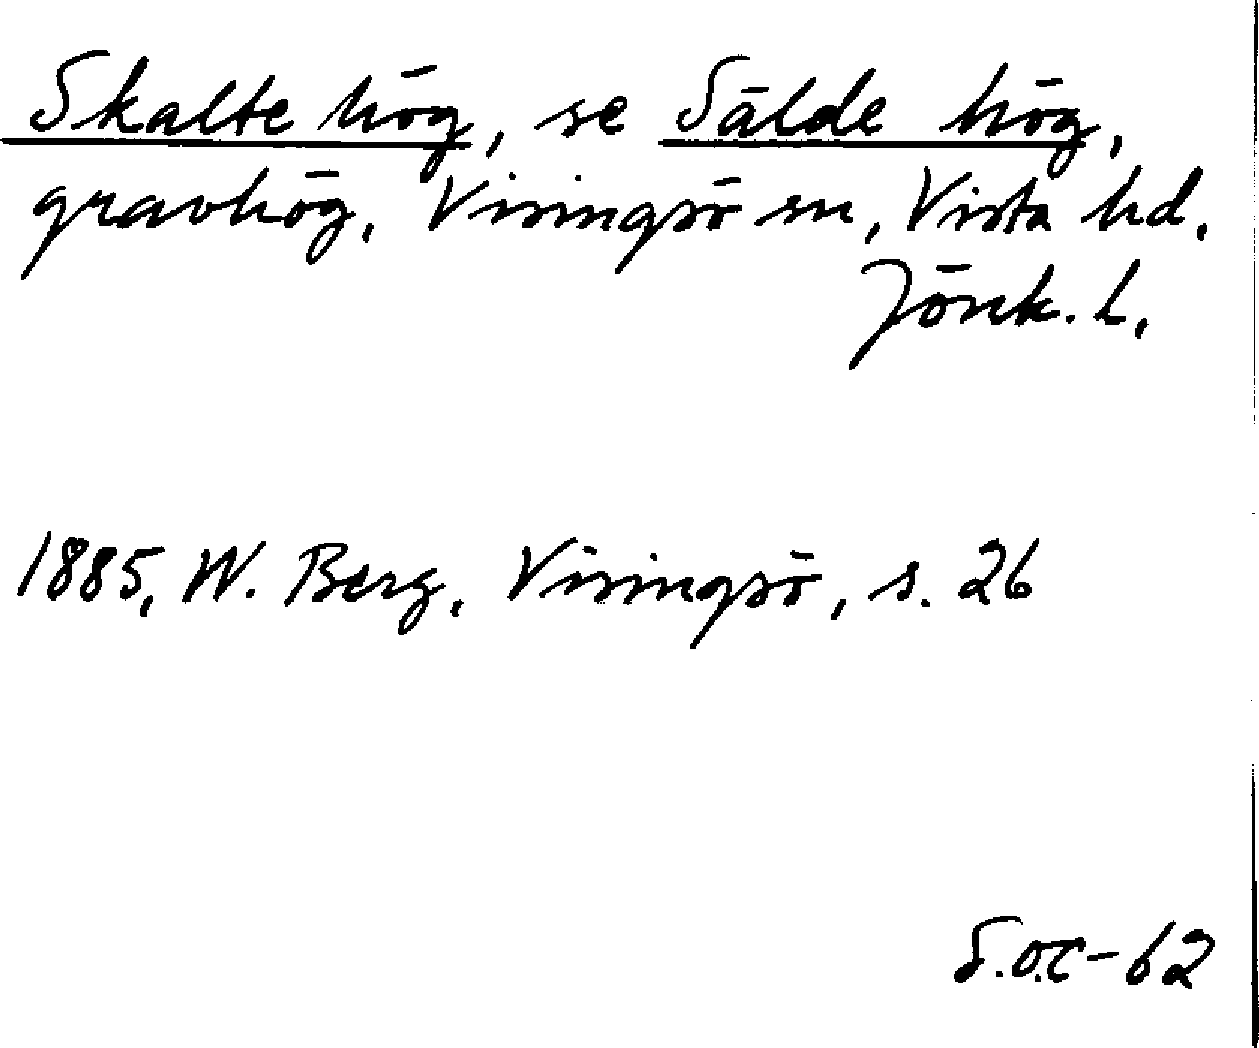 Skalte hög, se Sälde hög,
gravhög, Visingsö sn, Vista hd.
Jönk. l.
1885, W. Berg, Visingsö, s. 26
S.O.C-62